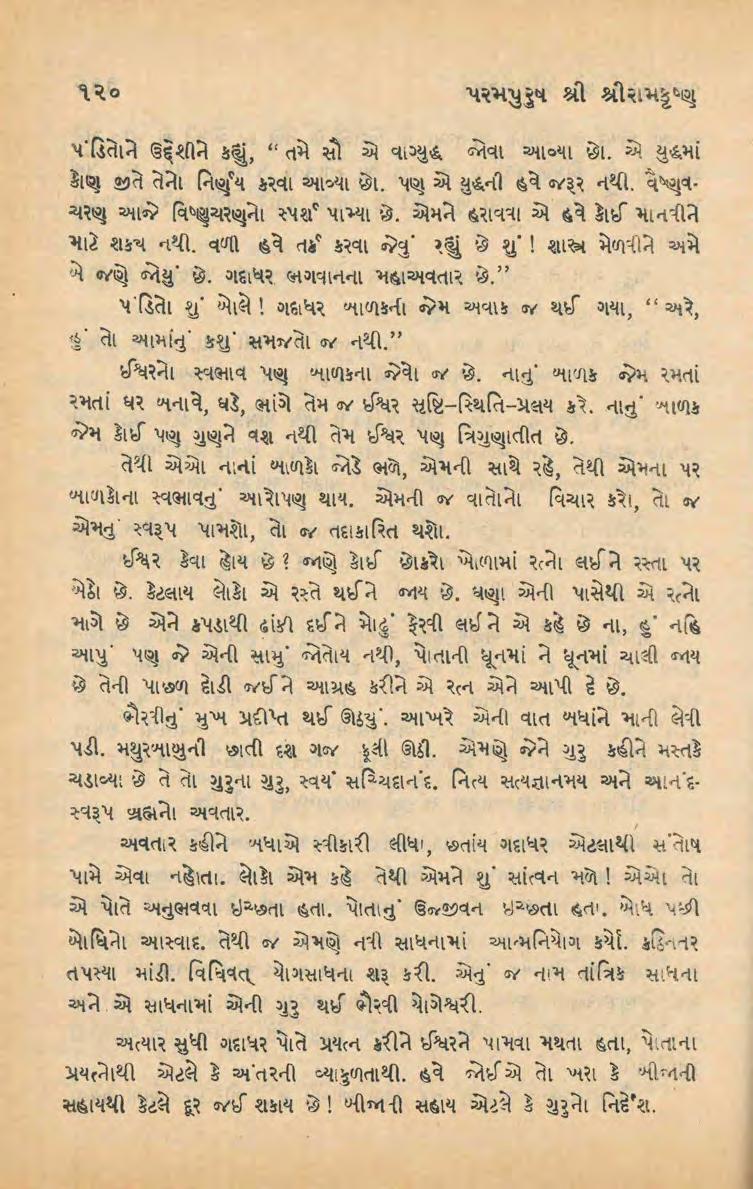 ૧૨૦ પરમપુરુષ શ્રી શ્રીરામકૃષ્ણ
પંડિતોને ઉદ્દેશીને કહ્યું, “ તમે સૌ એ વાગ્યુદ્ધ જોવા આવ્યા છો. એ યુદ્ધમાં
કોણ જીતે તેનો નિર્ણય કરવા આવ્યા છો. પણ એ યુદ્ધની હવે જરૂર નથી. વૈષ્ણવ-
ચરણ આજે વિષ્ણુચરણનો સ્પર્શ પામ્યા છે. એમને હરાવવા એ હવે કોઈ માનવીને
માટે શક્ય નથી. વળી હવે તર્ક કરવા જેવું રહ્યું છે શું ! શાસ્ત્ર મેળવીને અમે
બે જણે જોયું છે. ગદાધર ભગવાનના મહાઅવતાર છે.”
પંડિતો શું બોલે ! ગદાધર બાળકની જેમ અવાક જ થઈ ગયા, “ અરે,
હું તો આમાંનું કશું સમજતો જ નથી.”
ઈશ્વરનો સ્વભાવ પણ બાળકના જેવો જ છે. નાનું બાળક જેમ રમતાં
રમતાં ઘર બનાવે, ઘડે, ભાંગે તેમ જ ઈશ્વર સૃષ્ટિ–સ્થિતિ–પ્રલય કરે. નાનું બાળક
જેમ કોઈ પણ ગુણને વશ નથી તેમ ઈશ્વર પણ ત્રિગુણાતીત છે.
તેથી એઓ નાનાં બાળકો જોડે ભળે, એમની સાથે રહે, તેથી એમના પર
બાળકોના સ્વભાવનું આરોપણ થાય. એમની જ વાતોનો વિચાર કરો, તો જ
એમનું સ્વરૂપ પામશો, તો જ તદાકારિત થશો.
ઈશ્વર કેવા હોય છે ? જાણે કોઈ છોકરો ખોળામાં રત્નો લઈને રસ્તા પર
બેઠો છે. કેટલાય લોકો એ રસ્તે થઈને જાય છે. ઘણા એની પાસેથી એ રત્નો
માગે છે એને કપડાથી ઢાંકી દઈને મોઢું ફેરવી લઈને એ કહે છે ના, હું નહિ
આપું પણ જે એની સામું જોતોય નથી, પોતાની ધૂનમાં ને ધૂનમાં ચાલી જાય
છે તેની પાછળ દોડી જઈને આગ્રહ કરીને એ રત્ન એને આપી દે છે.
ભૈરવીનું મુખ પ્રદીપ્ત થઈ ઊઠ્યું. આખરે એની વાત બધાંને માની લેવી
પડી. મથુરબાબુની છાતી દશ ગજ ફૂલી ઊઠી. એમણે જેને ગુરુ કહીને મસ્તકે
ચડાવ્યા છે તે તો ગુરુના ગુરુ, સ્વયં સચ્ચિદાનંદ. નિત્ય સત્યજ્ઞાનમય અને આનંદ-
સ્વરૂપ બ્રહ્મનો અવતાર.
અવતાર કહીને બધાએ સ્વીકારી લીધા, છતાંય ગદાધર એટલાથી સંતોષ
પામે એવા નહોતા. લોકો એમ કહે તેથી એમને શું સાંત્વન મળે ! એઓ તો
એ પોતે અનુભવવા ઇચ્છતા હતા. પોતાનું ઉજ્જીવન ઇચ્છતા હતા. બોધ પછી
બોધિનો આસ્વાદ. તેથી જ એમણે નવી સાધનામાં આત્મનિયોગ કર્યો. કઠિનતર
તપસ્યા માંડી. વિધિવત્ યોગસાધના શરૂ કરી. એનું જ નામ તાંત્રિક સાધના
અને એ સાધનામાં એની ગુરુ થઈ ભૈરવી યોગેશ્વરી.
અત્યાર સુધી ગદાધર પોતે પ્રયત્ન કરીને ઈશ્વરને પામવા મથતા હતા, પોતાના
પ્રયત્નોથી એટલે કે અંતરની વ્યાકુળતાથી. હવે જોઈએ તો ખરા કે બીજાની
સહાયથી કેટલે દૂર જઈ શકાય છે ! બીજાની સહાય એટલે કે ગુરુનો નિર્દેશ.